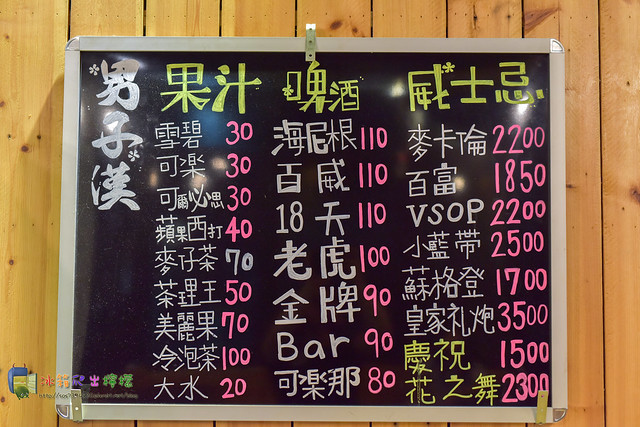 男子漢
果汁
雪碧 30
可樂 30
可爾必思 30
蘋果西打 40
麥仔茶 70
茶裏王 50
美麗果 70
冷泡茶 100
大水 20
啤酒
海尼根 110
百威 110
18天 110
老虎 100
金牌 90
Bar 90
可樂那 80
威士忌
麥卡倫 2200
百富 1850
VSOP 2200
小藍帶 2500
蘇格登 1700
皇家礼炮 3500
慶祝 1500
花之舞 2300